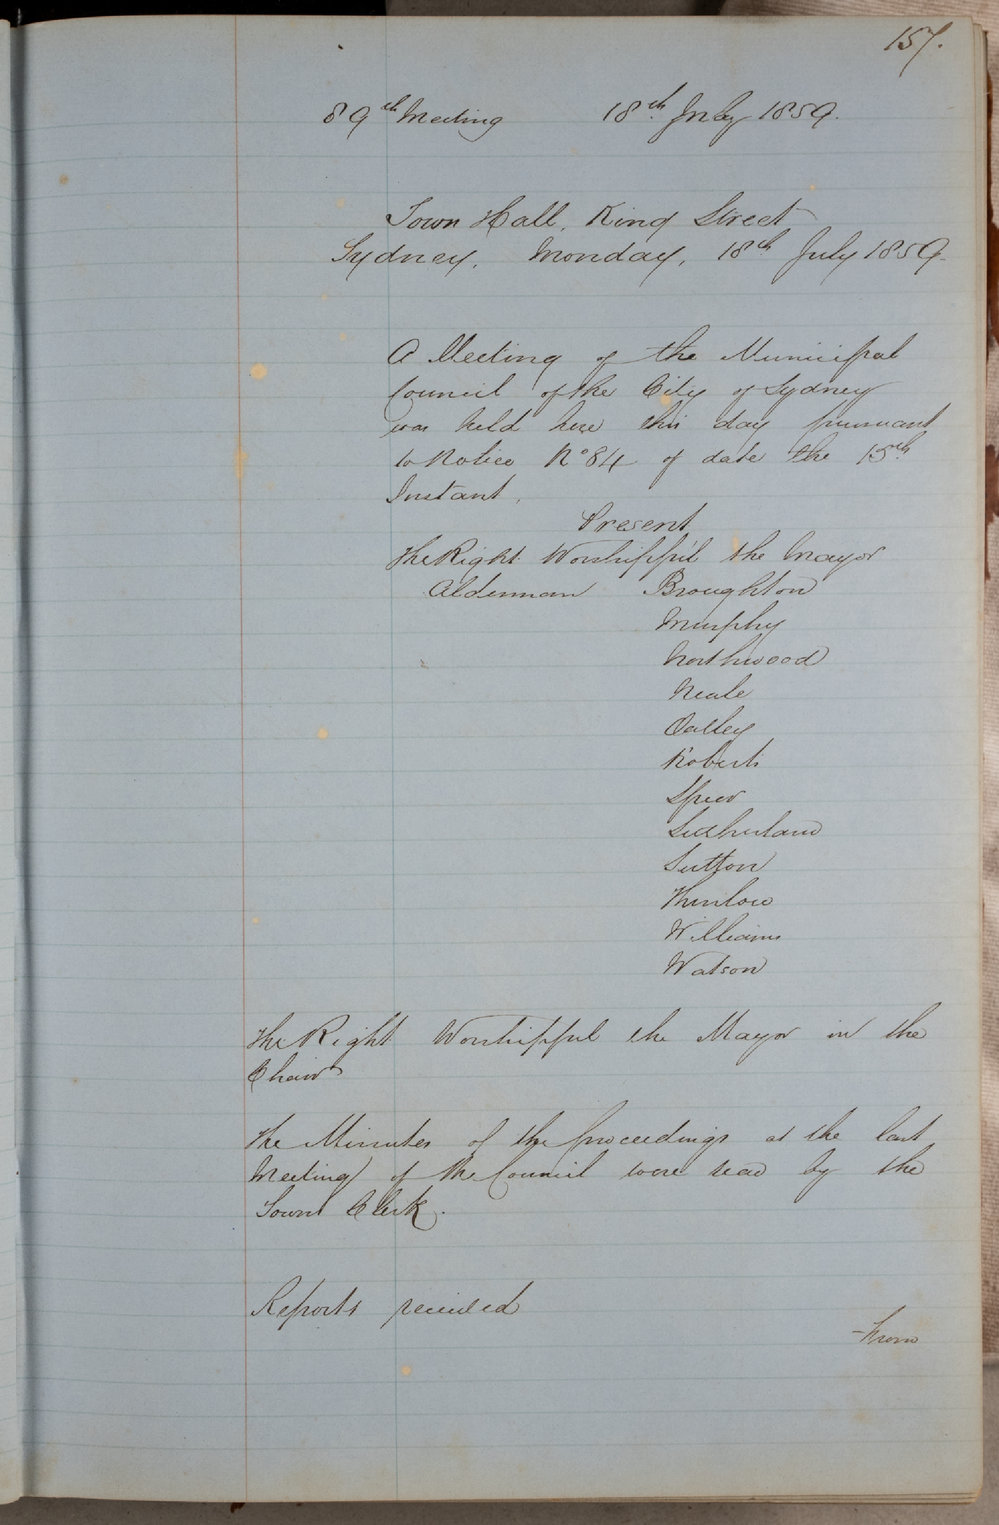 157.
89th Meeting 18th July 1859.
Town Hall, King Street
Sydney, Monday, 18th July 1859.
A Meeting of the Municipal
Council of the City of Sydney
was held here this day pursuant
to Notice No 84 of date the 15th
Instant.
Present
The Right Worshipful the Mayor
Alderman Broughton
Murphy
Northwood
Neale
Oatley
Roberts
Speer
Sutherland
Sutton
Thurlow
Williams
Watson
The Right Worshipful the Mayor in the
Chair
The Minutes of the proceedings at the last
Meeting of the Council were read by the
Town Clerk.
Reports received
From